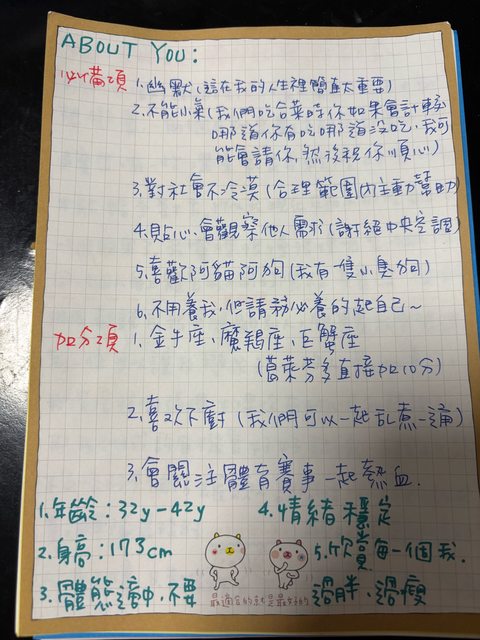 ABOUT YOU:
必備項
1.幽默(這在我的人生裡簡直太重要)
2.不能小氣(我們吃合菜時你如果會計較
哪道你有吃哪道沒吃,我可
能會請你,然後祝你順心)
3.對社會不冷漠(合理範圍內主動幫助)
4.貼心、會觀察他人需求(謝絕中央空調)
5.喜歡阿貓阿狗(我有一隻小臭狗)
6.不用養我,但請務必養的起自己~
加分項
1.金牛座、魔羯座、巨蟹座
(葛萊芬多直接加10分)
2.喜歡下廚(我們可以一起亂煮一通)
3.會關注體育賽事一起熱血.
1.年齡:32y-42y
4.情緒穩定
2.身高:173cm
5.欣賞每一個我.
3.體態適中,不要
過胖、過瘦
最適合的就是最好的